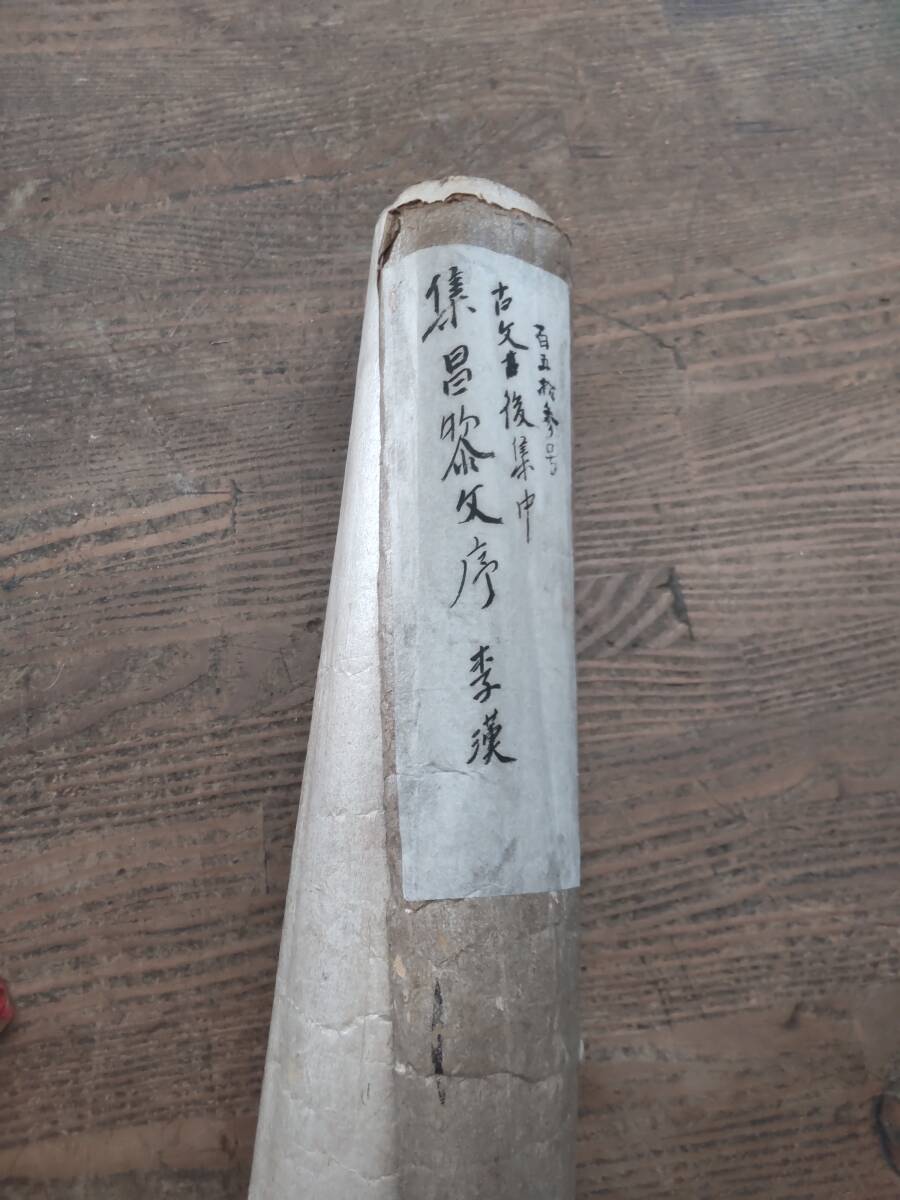 百五拾参号
古文書後集中
集昌黎文序 李漢